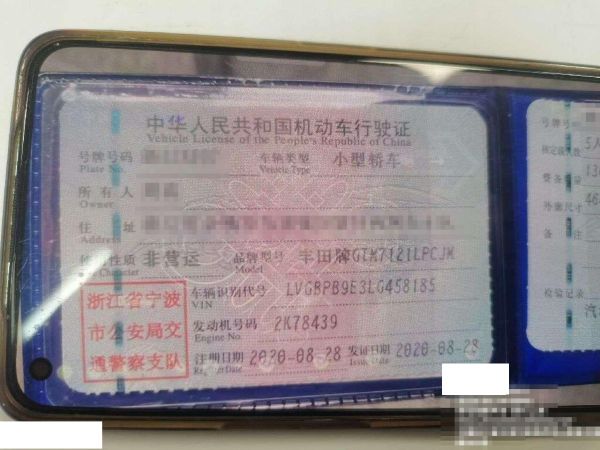 中华人民共和国机动车行驶证
Vehicle License of the People's Republic of China
号牌号码 车辆类型 小型轿车
Plate No. Vehicle Type
所有人
Owner
住址
Address
使用性质 非营运 品牌型号 丰田牌GTM7121LPCJM
Use Character Model
浙江省宁波
市公安局交
通警察支队
车辆识别代号 LVGBPB9E3LG458185
VIN
发动机号码 2K78439
Engine No.
注册日期 2020-08-28 发证日期 2020-08-28
Register Date Issue Date
号牌号
核定载人数 5人
整备质量
外廓尺寸
备注
检验记录